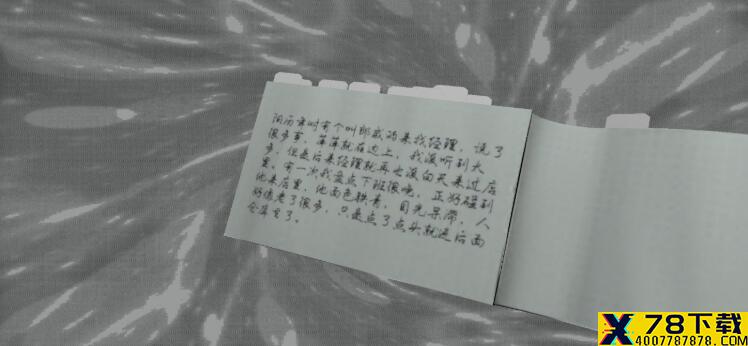 阳历年时有个叫郎成功来找经理，说了
很多事，萍萍就在边上，我没听到太
多，但是后来经理就再也没白天来过店
里，有一次我盘点下班很晚，正好碰到
他来店里，他面色铁青，目光呆滞，人
好像老了很多，只是点了点头就进后面
仓库去了。
78下载
4007787878.COM